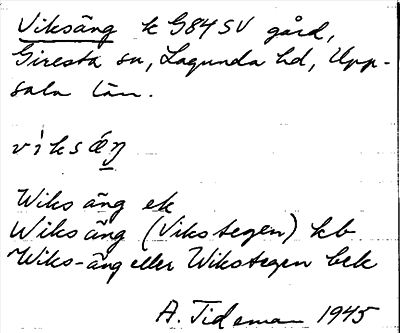 Viksäng k G84SV gård,
Giresta sn, Lagunda hd, Upp-
sala län.
víksǽŋ
Wiks äng ek
Wiks äng (Vikstegen) kb
Wiks-äng eller Wikstegen bek
A. Tideman 1945